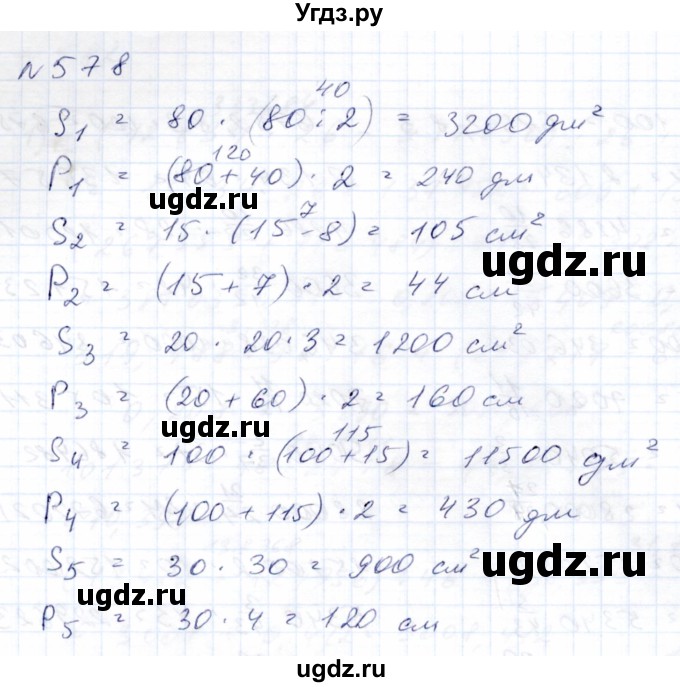 Угдз.ру
N578
40
S1 = 80 · (80 : 2) = 3200 дм²
120
P1 = (80 + 40) · 2 = 240 дм
ugdz.ru
7
S2 = 15 · (15 - 8) = 105 см²
ugdz.ru
P2 = (15 + 7) · 2 = 44 см
S3 = 20 · 20 · 3 = 1200 см²
ugdz.ru
P3 = (20 + 60) · 2 = 160 см
ugdz.ru
115
S4 = 100 · (100 + 15) = 11500 дм²
P4 = (100 + 115) · 2 = 430 дм
ugdz.ru
S5 = 30 · 30 = 900 см²
ugdz.ru
P5 = 30 · 4 = 120 см
ugdz.ru